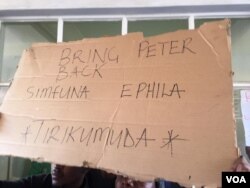 BRING PETER
BACK
SIMEUNA EPHILA
#TIRIKUMUDA*
VOA